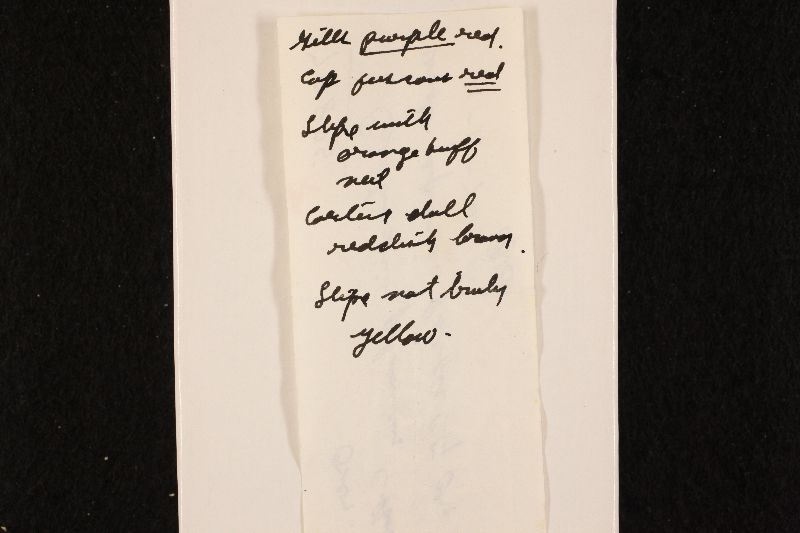 Gills purple red.
Cap fuscous red
Stipe with
orange buff
veil
Cortina dull
reddish brown.
Stipe not truly
yellow.